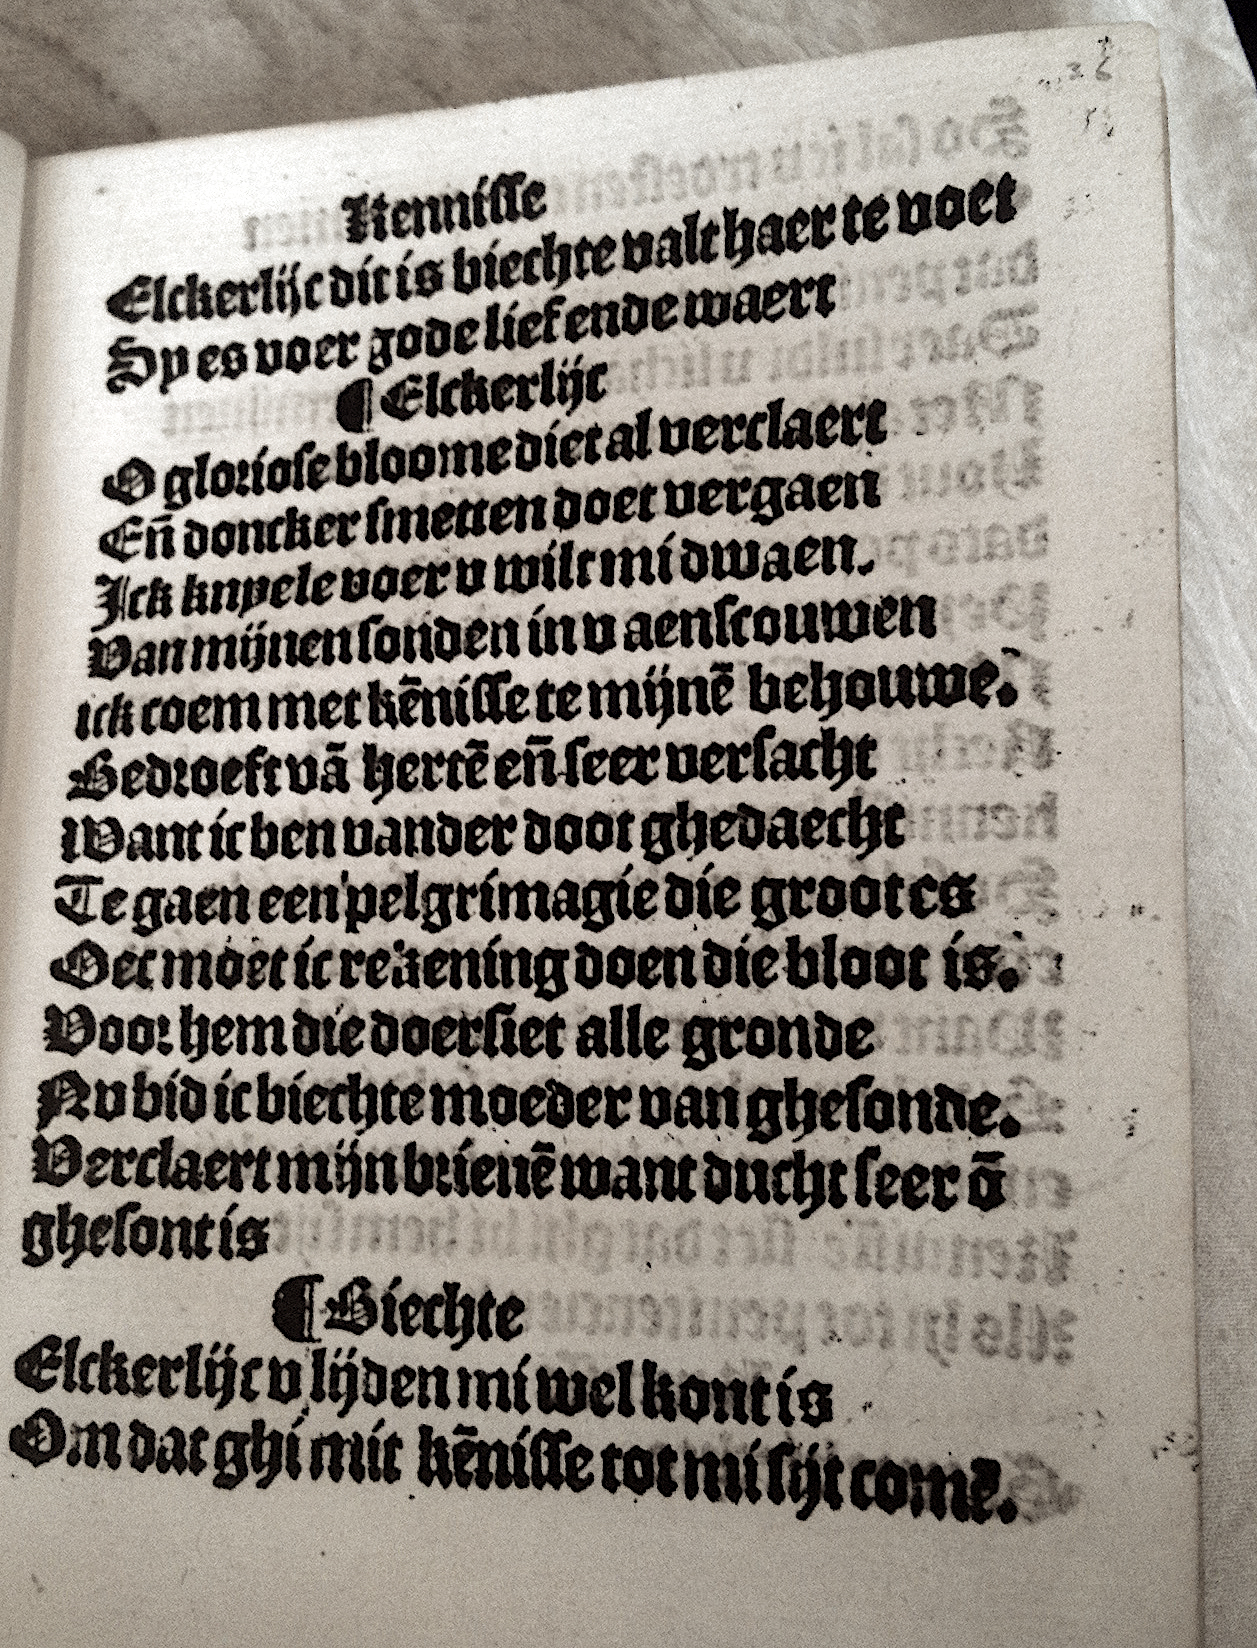 Kenniſſe
Elckerlijc dit is biechte valt haer te voet
Sy es voer gode lief ende waert
¶ Elckerlijc
O glorioſe bloome diet al verclaert
Eñ doncker ſmetten doet vergaen
Ick knyele voer v wilt mi dwaen.
Van mijnen ſonden in v aenſcouwen
ick coem met kēniſſe te mijnē behouwe.
Bedroeft vā hertē eñ ſeer verſacht
Want ic ben vander doot ghedaecht
Te gaen een pelgrimagie die groot es
Oec moet ic rekening doen die bloot is.
Voor hem die doerſiet alle gronde
Nv bid ic biechte moeder van gheſonde.
Verclaert mijn brieuē want ducht ſeer ō
gheſont is
¶ Biechte
Elckerlijc v lijden mi wel kont is
Om dat ghi mit kēniſſe tot mi ſijt comē.